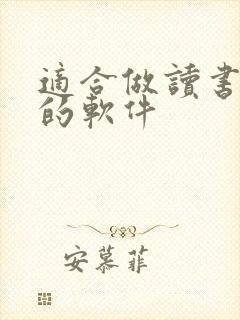 適合做讀書
的軟件
安慕菲